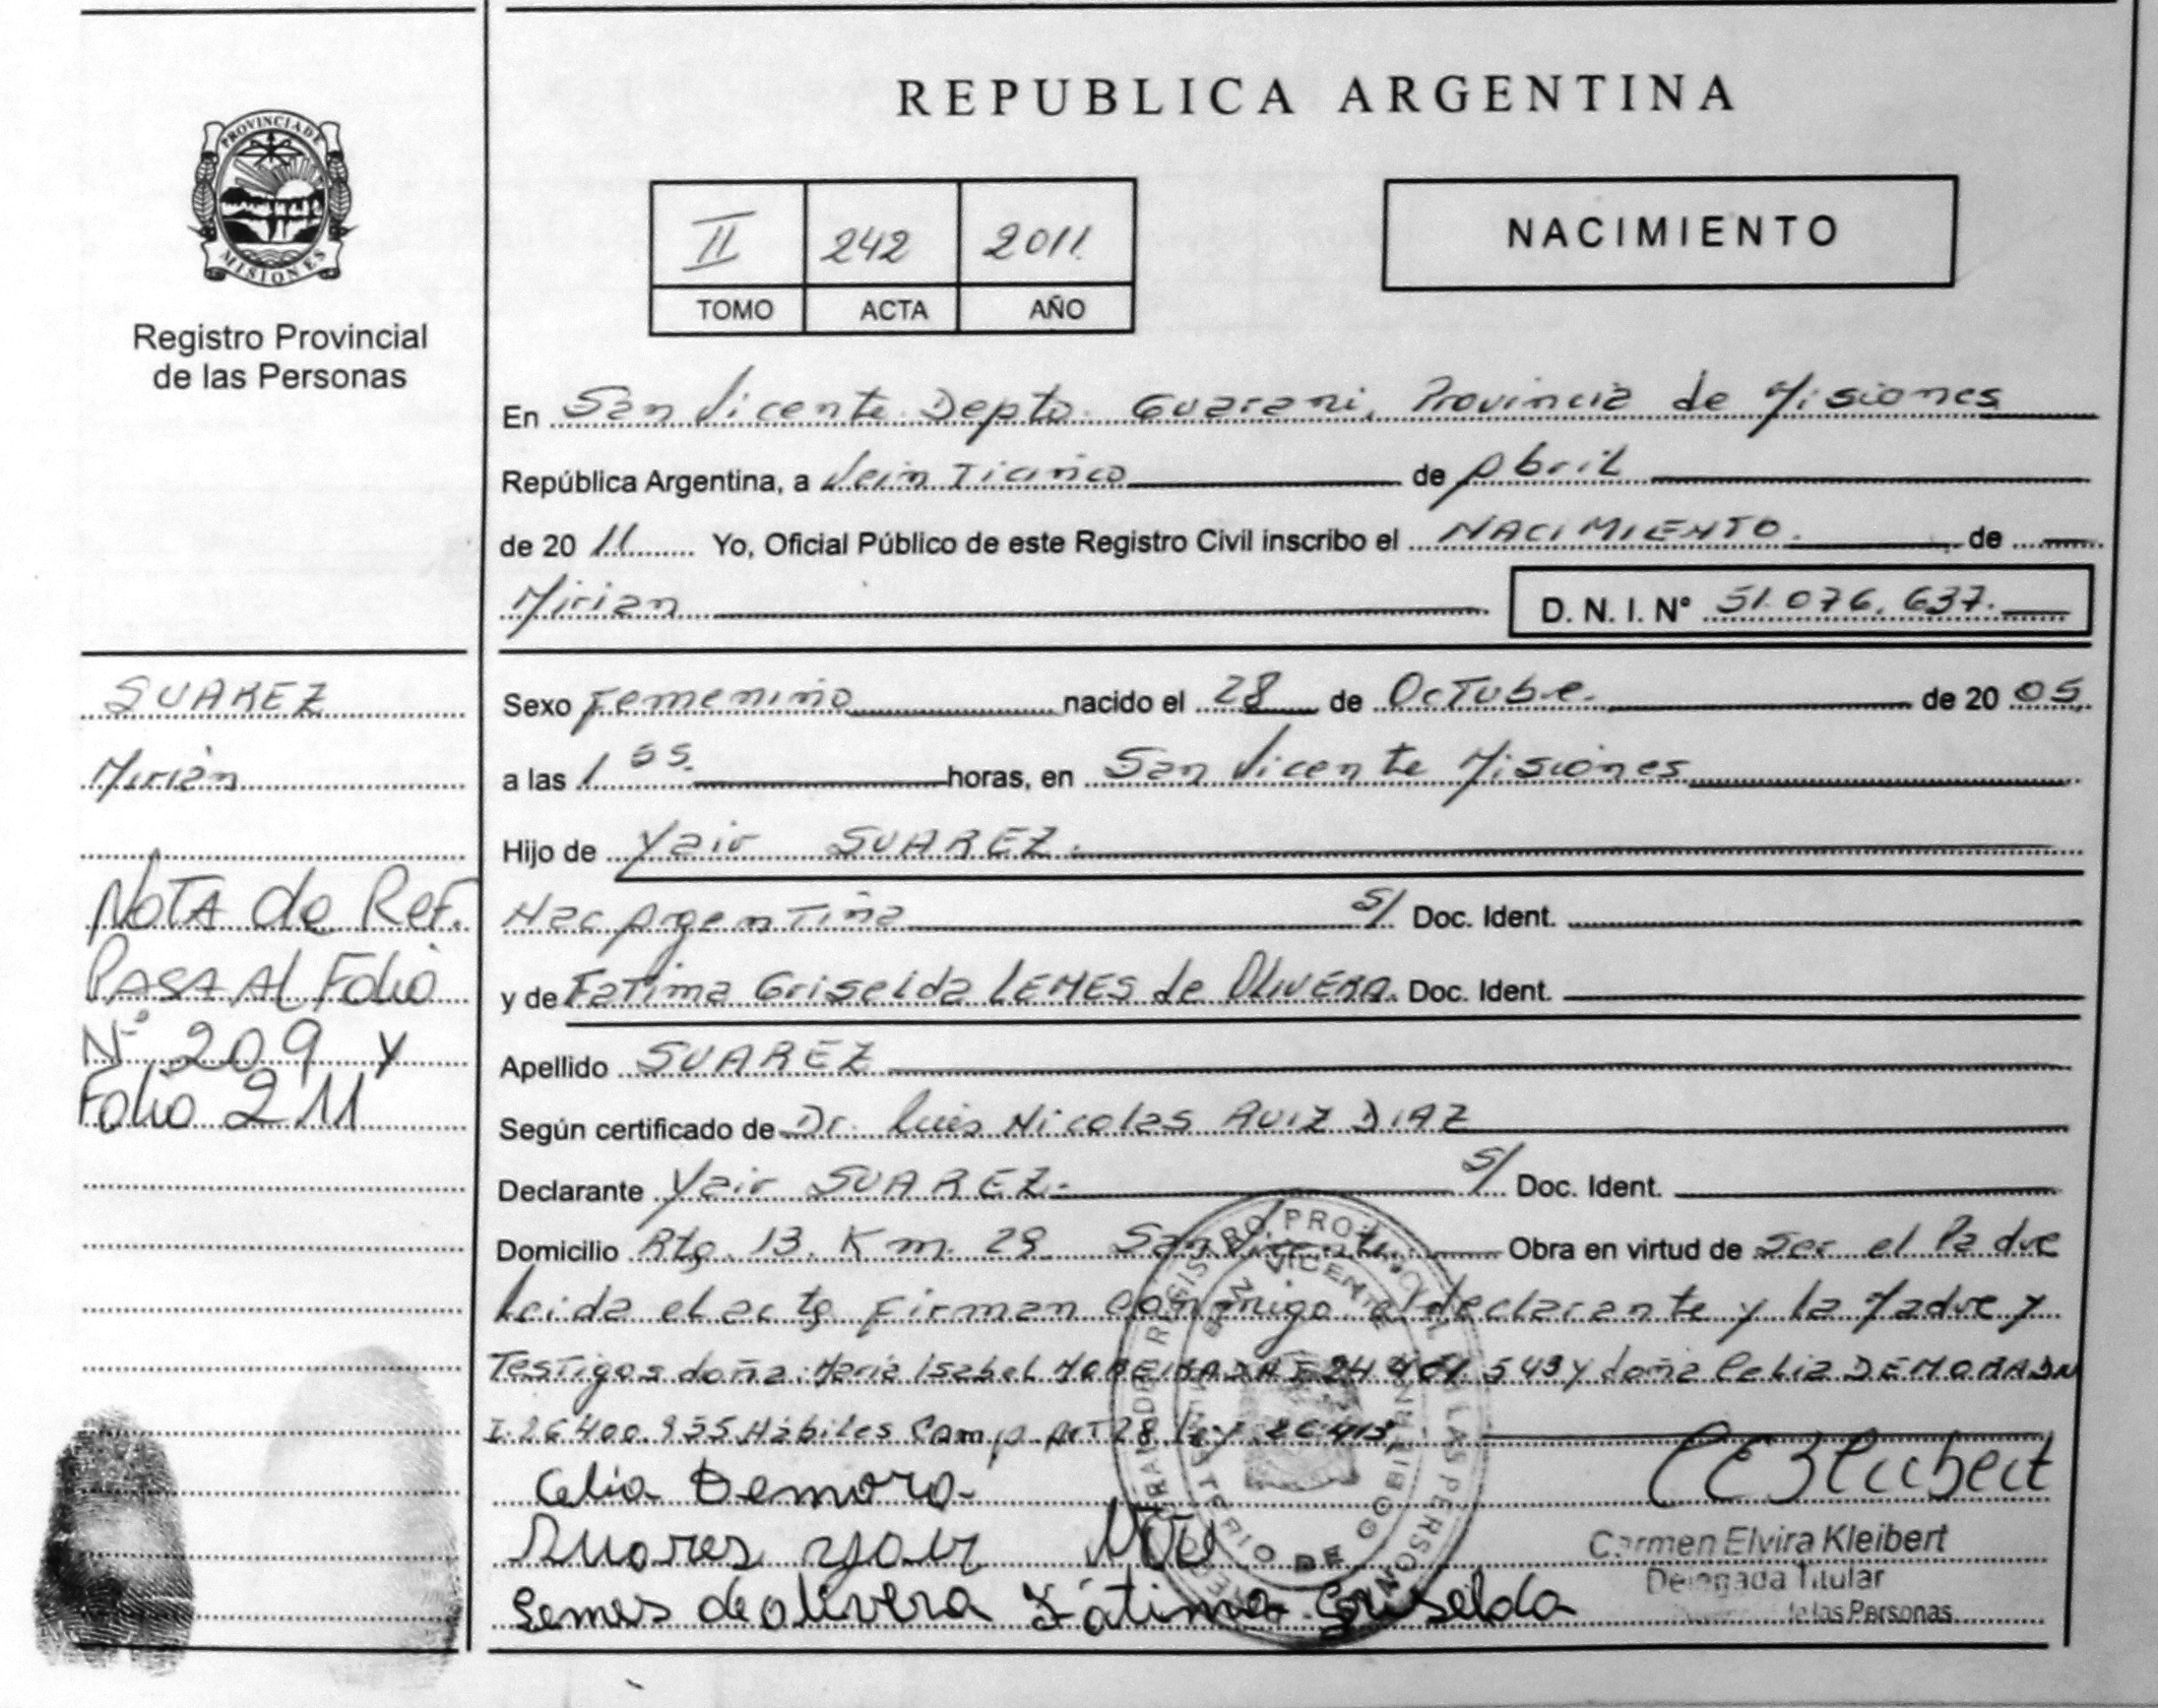 PROVINCIA DE
MISIONES
Registro Provincial
de las Personas
REPUBLICA ARGENTINA
II 242 2011
TOMO ACTA AÑO
NACIMIENTO
En San Vicente Depto. Guarani, Provincia de Misiones
República Argentina, a Veinticinco de Abril
de 2011 Yo, Oficial Público de este Registro Civil inscribo el NACIMIENTO. de
Mirian D. N. I. N° 51.076.637.
SUAREZ
Mirian
Nota de Ref.
Pasa Al Folio
N° 209 y
Folio 211
Sexo Femenino nacido el 28 de Octubre. de 2005.
a las 1 55. horas, en San Vicente Misiones
Hijo de Yair SUAREZ.
Nac Argentina S/ Doc. Ident.
y de Fatima Griselda LEMES de OLIVERA. Doc. Ident.
Apellido SUAREZ
Según certificado de Dr. Luis Nicolas RUIZ DIAZ
Declarante Yair SUAREZ.- S/ Doc. Ident.
Domicilio Rta. 13. Km. 28 San Vicente. Obra en virtud de Ser el Padre
Leida el acta Firman conmigo el declarante y la Madre y
Testigos doña: Maria Isabel 543 y doña Celia DEMORA DN
I. 26.400.955 Hábiles Comp. Art 28 Ley 26.413.
Celia Demora
Suares yair
Lemes de olivera Fátima Griselda
Carmen Elvira Kleibert
Delegada Titular
de las Personas
SAN VICENTE